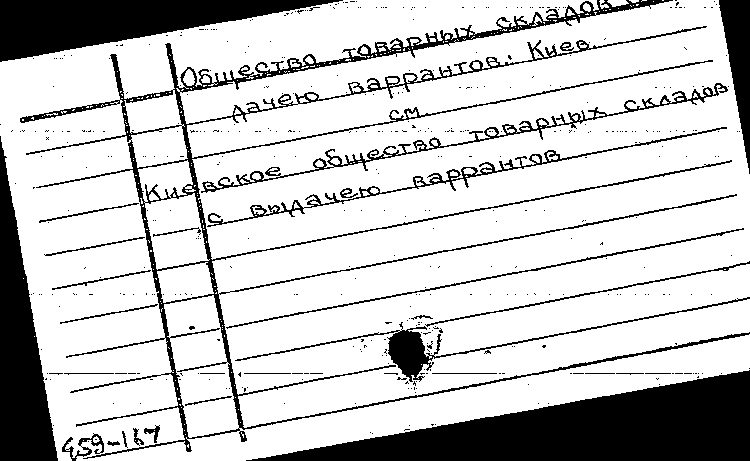 Общество товарных складов
дачею варрантов. Киев.
см
Киевское общество товарных складов
с выдачею варрантов